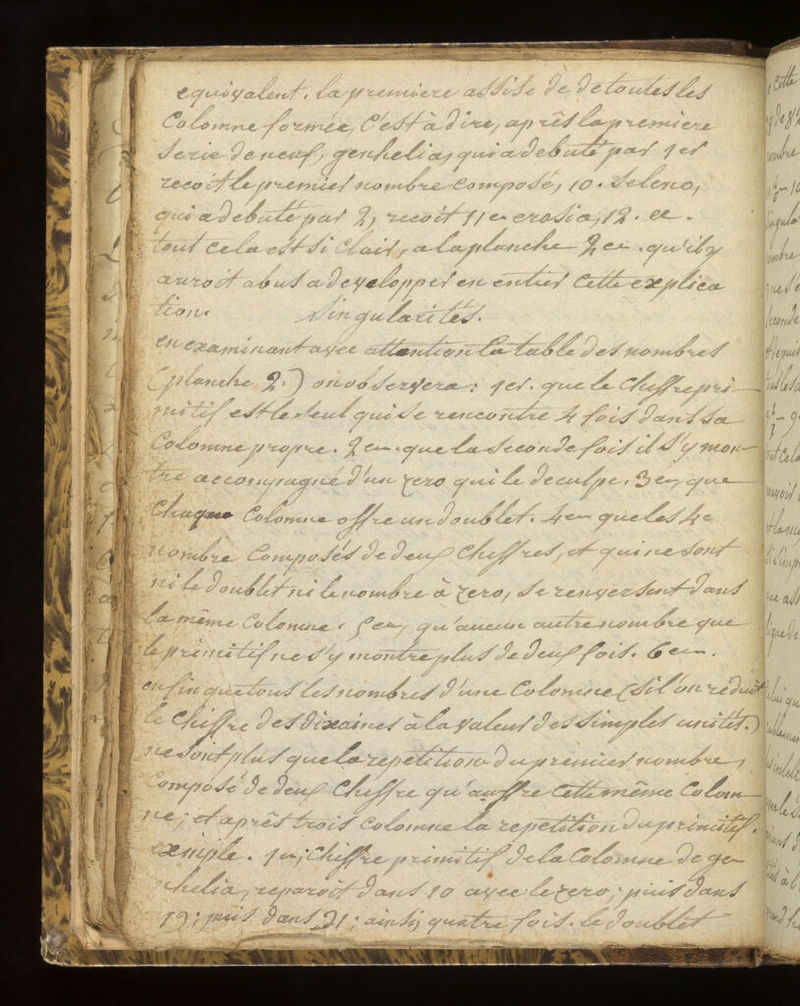 equivalent. la premiere assise de de toutes les
Colomne formée, C'est à dire, après la premiere
Serie de neuf, genhelia, qui a debuté par 1er
recoit le premier nombre Composé, 10. Seleno,
qui a debuté par 2, recoit 11 erosia, 12. &.
tout cela est Si Clair, a la planche 2e. qu'il y
auroit abus a developper en entier Cette explica
tion. Singularités.
en examinant avec attention la table des nombres
(planche 2.) on observera: 1er. que le Chiffre pri-
mitif est le seul qui se rencontre 4 fois dans Sa
Colomne propre. 2e. que la Seconde fois il S'y mon-
tre accompagné d'un zero qui le decuple. 3e, que
Chaque Colomne offre un doublet. 4e que les
nombre Composés de deux Chiffres, et qui ne Sont
ni le doublet ni le nombre à zero, Se renversent dans
la même Colomne. 5e, qu'aucun autre nombre que
le primitif ne S'y montre plus de deux fois. 6e.
enfin que tous les nombres d'une Colomne (Si l'on reduit
le Chiffre des dixaines à la valeur des Simples unités.)
ne Sont plus que la repetition du premier nombre,
Composé de deux Chiffre qu'auffre Cette même Colom-
ne; et après trois Colomne la repetition du primitif.
exemple. 1e; Chiffre primitif de la Colomne de ge-
nhelia, reparoit dans 10 avec le zero; puis dans
12; puis dans 21; ainsi, quatre fois. le doublet